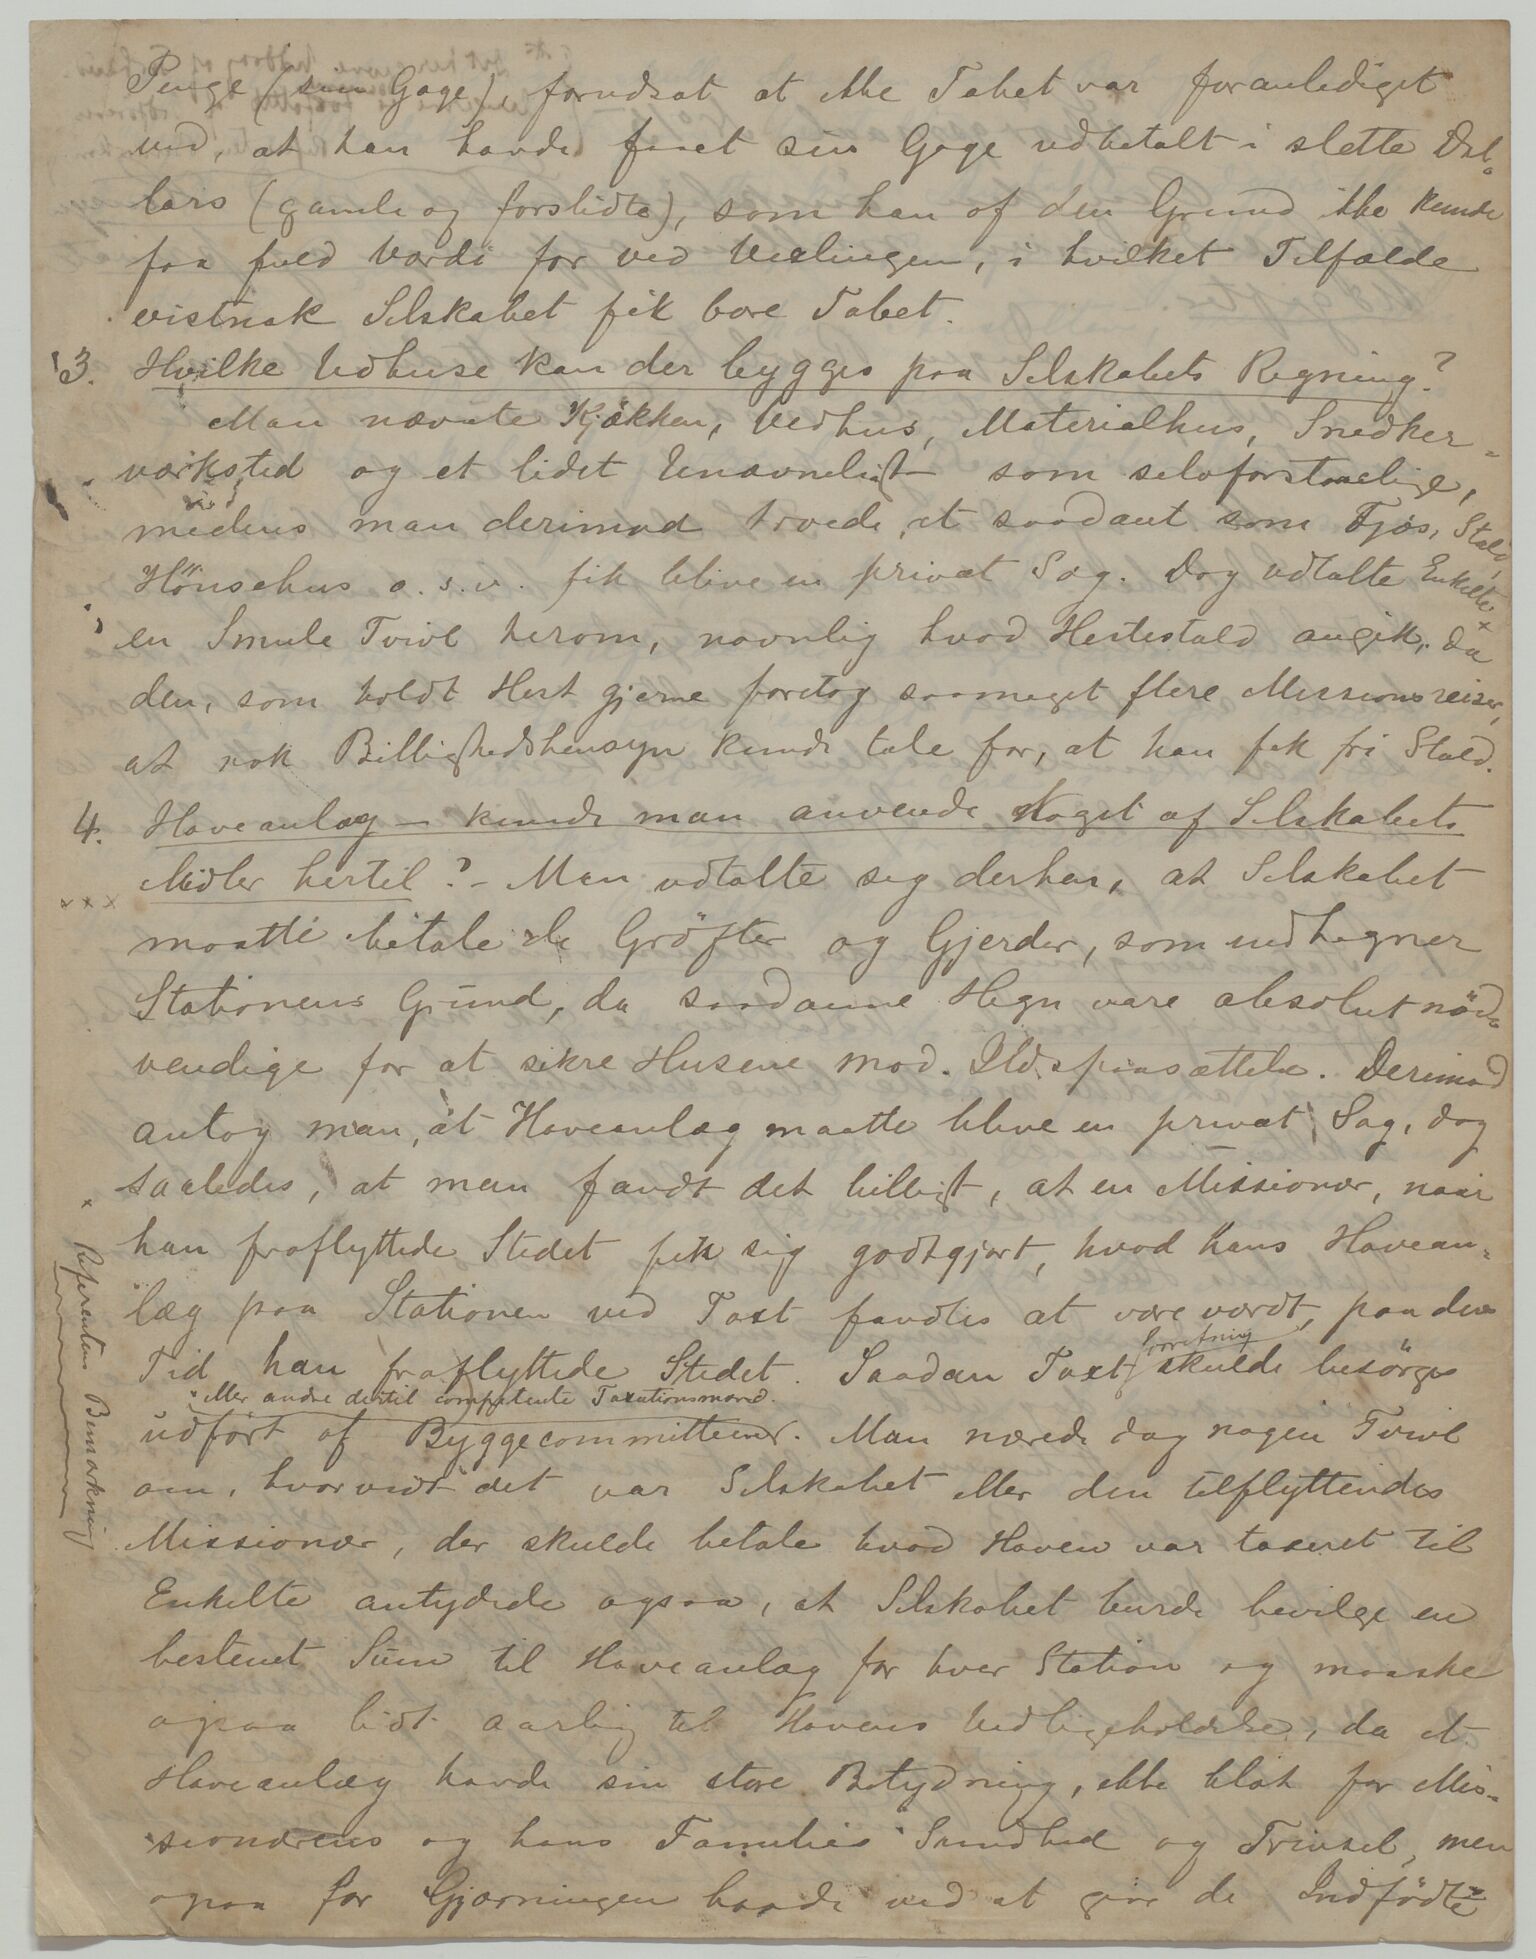 Penge (sin Gage), forudsat at ikke Tabet var foranlediget
ved, at han havde faaet sin Gage udbetalt i slette Dol-
lars (gamle og forslidte), som han af den Grund ikke kunde
faa fuld Værdi for ved Vexlingen, i hvilket Tilfælde
vistnok Selskabet fik bære Tabet.
3. Hvilke Udhuse kan der bygges paa Selskabets Regning?
Man nævnte Kjøkken, Vedhus, Materialhus, Snedker-
værksted og et lidet Unævneligt som selvforstaaelige,
medens man derimod troede, at saadant som Fjøs, Stald,
Hönsehus o. s. v. fik blive en privat Sag. Dog udtalte Enkelte
en Smule Tvivl herom, navnlig hvad Hestestald angik, x da
den, som holdt Hest gjerne foretog saameget flere Missionsreiser,
at nok Billighedshensyn kunde tale for, at han fik fri Stald.
4. Haveanlæg — kunde man anvende Noget af Selskabets
Midler hertil? - Man udtalte sig derhen, at Selskabet
x x x
maatte betale de Gröfter og Gjerder, som indhegner
Stationens Grund, da saadanne Hegn vare absolut nöd-
vendige for at sikre Husene mod Ildspaasættelse. Derimod
antog man, at Haveanlæg maatte blive en privat Sag, dog
saaledes, at man fandt det billigt, at en Missionær, naar
han fraflyttede Stedet fik sig godtgjort, hvad hans Havean-
læg paa Stationen ved Taxt fandtes at være værdt, paa den
Tid han fraflyttede Stedet. Saadan Taxt forretning skulde besörges
x eller andre dertil competente Taxationsmænd.
udfört af Byggecommitteen. Man nærede dog nogen Tvivl
om, hvorvidt det var Selskabet eller den tilflyttende
Missionær, der skulde betale hvad Haven var taxeret til
Enkelte antydede ogsaa, at Selskabet burde bevilge en
bestemt Sum til Haveanlæg for hver Station og maaske
ogsaa lidt aarlig til Havens Vedligeholdelse, da et
Haveanlæg havde sin store Betydning, ikke blot for Mis-
sionærens og hans Families Sundhed og Trivsel, men
ogsaa for Gjerningen baade ved at give de Indfödte
x Referentens Bemærkning